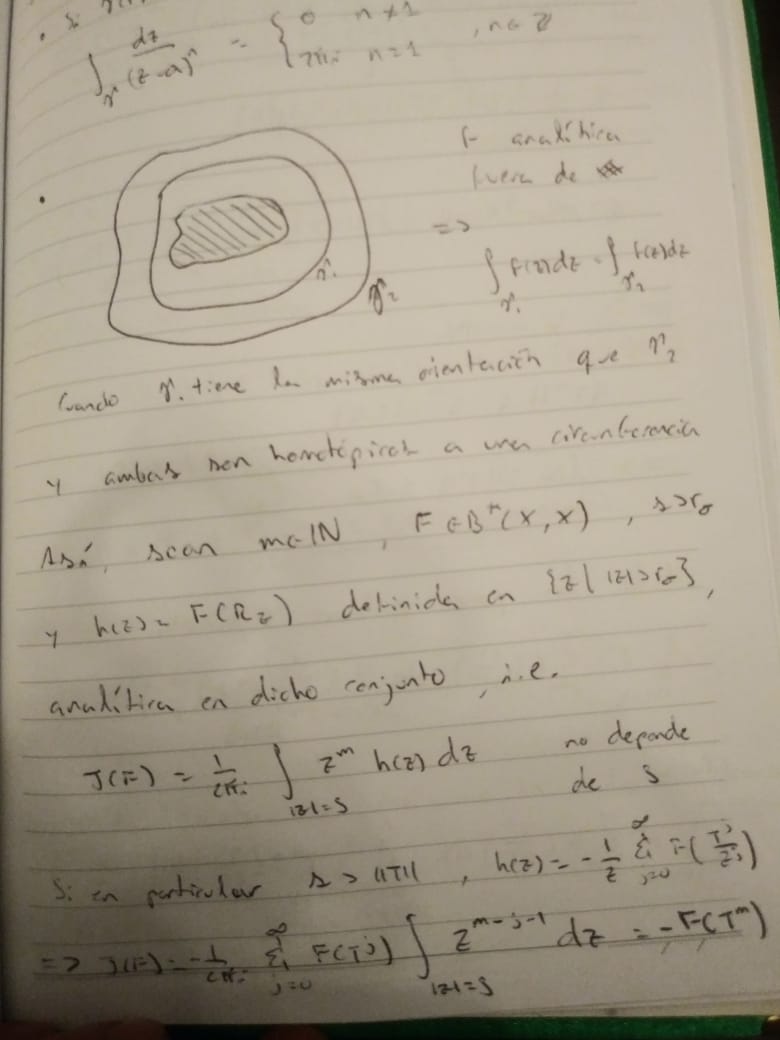 • Si
∫_γ dz/(z-a)^n = { 0 n≠1 , n∈ℤ
2πi n=1
F analítica
fuera de
=>
∫_γ₁ F(z)dz = ∫_γ₂ F(z)dz
γ₁
γ₂
Cuando γ₁ tiene la misma orientación que γ₂
y ambas son homotópicas a una circunferencia
Así, sean m∈ℕ, F∈B*(X,X), s>r_σ
y h(z) = F(R_z) definida en {z| |z|>r_σ},
analítica en dicho conjunto, i.e.
J(F) = 1/2πi ∫_{|z|=s} z^m h(z) dz no depende
de s
Si en particular s > ||T||, h(z) = -1/z Σ_{j=0}^∞ F(T^j/z^j)
=> J(F) = -1/2πi Σ_{j=0}^∞ F(T^j) ∫_{|z|=s} z^{m-j-1} dz = -F(T^m)